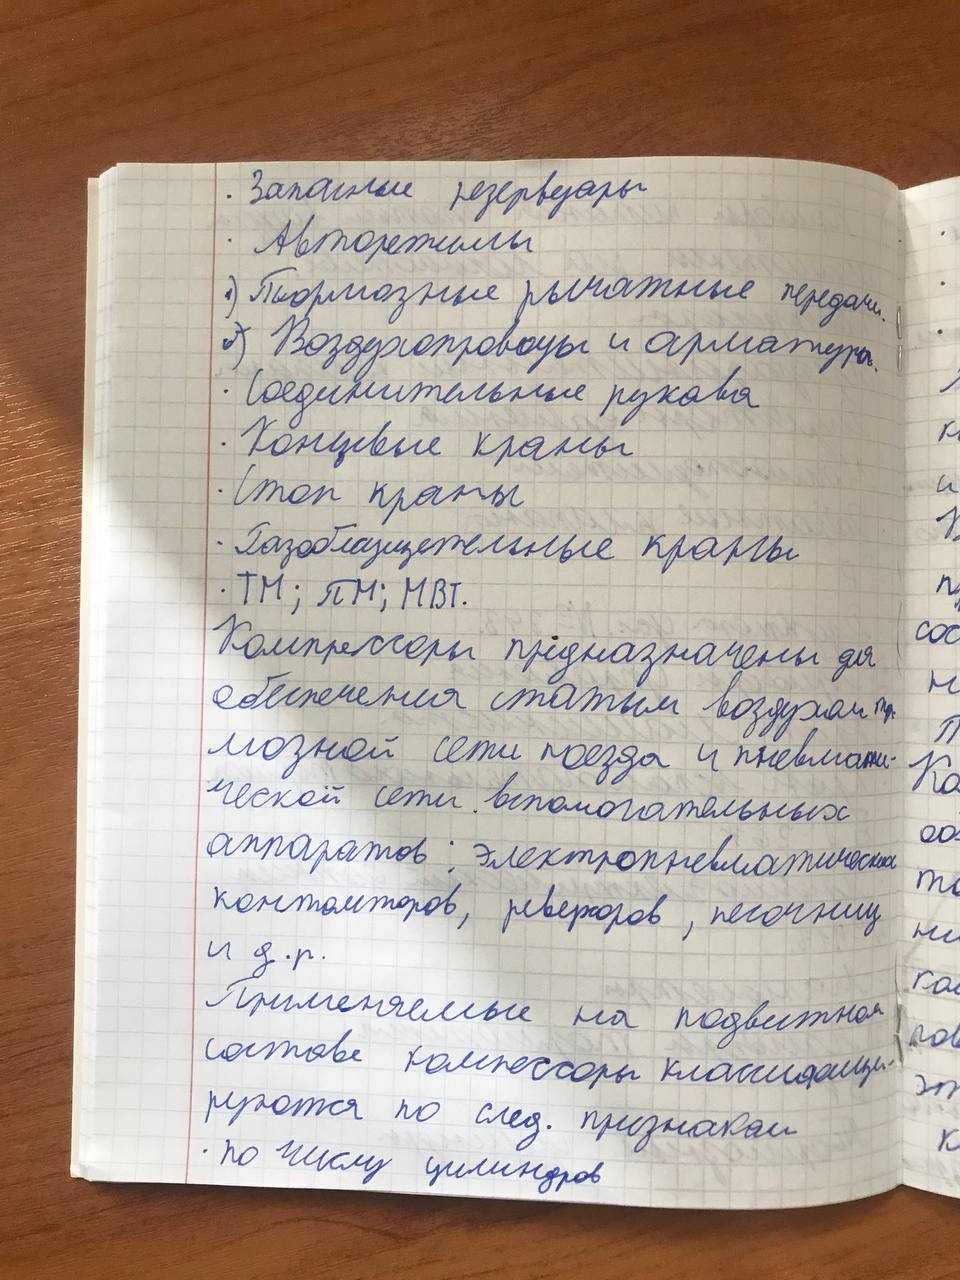 · Запасные резервуары
· Авторежимы
) Тормозные рычатные передачи.
) Воздухопроводы и арматуры.
· Соединительные рукава
· Концевые краны
· Стоп краны
· краны
· ТМ; ПМ; МВТ.
Компрессоры предназначены для
обеспечения статым воздухом тор-
мозной сети поезда и пневмати-
ческой сети вспомогательных
аппаратов: электропневматических
контакторов, реверсоров, песочниц
и д.р.
Применяемые на подвижном
составе компессоры классифици-
руются по след. признакам
· по числу цилиндров